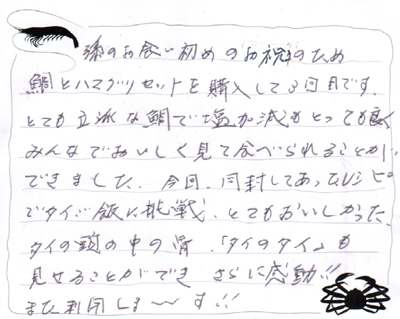 孫のお食い初めのお祝のため
鯛とハマグリセットを購入して3回目です。
とても立派な鯛で塩加減もとっても良く
みんなでおいしく見て食べられることが
できました。今回、同封してあったレシピ
でタイご飯に挑戦。とてもおいしかった。
タイの頭の中の骨、「タイのタイ」も
見せることができ さらに感動!!
また利用しま〜す!!